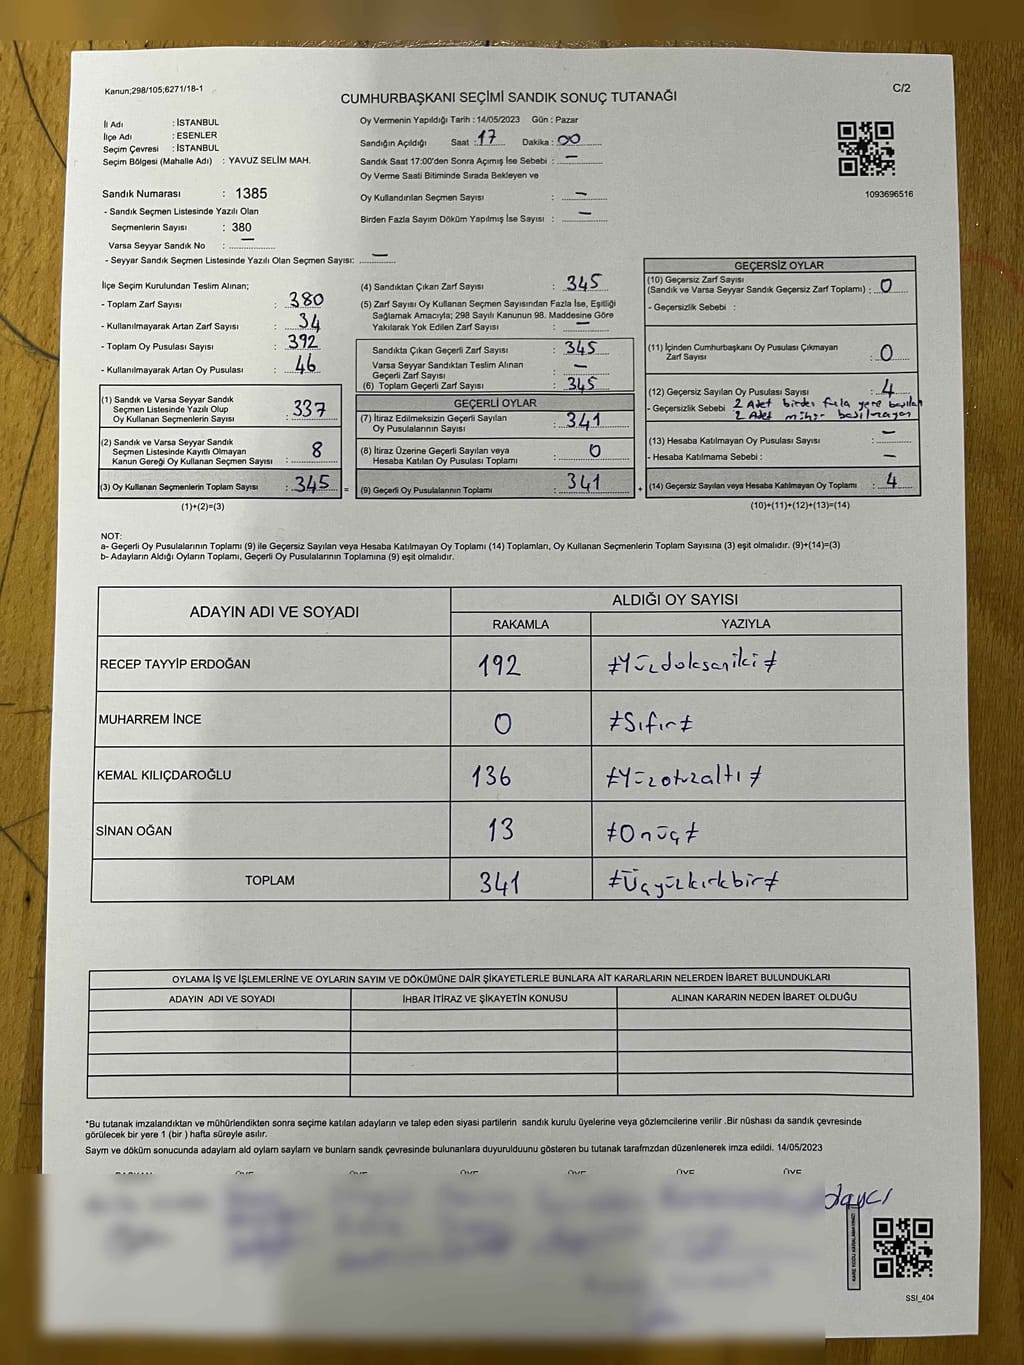 Kanun;298/105;6271/18-1
C/2
CUMHURBAŞKANI SEÇİMİ SANDIK SONUÇ TUTANAĞI
İl Adı : İSTANBUL
İlçe Adı : ESENLER
Seçim Çevresi : İSTANBUL
Seçim Bölgesi (Mahalle Adı) : YAVUZ SELİM MAH.
Oy Vermenin Yapıldığı Tarih : 14/05/2023 Gün : Pazar
Sandığın Açıldığı Saat : 17 Dakika : 00
Sandık Saat 17:00'den Sonra Açımış İse Sebebi : —
Oy Verme Saati Bitiminde Sırada Bekleyen ve
Oy Kullandırılan Seçmen Sayısı : —
Birden Fazla Sayım Döküm Yapılmış İse Sayısı : —
1093696516
Sandık Numarası : 1385
- Sandık Seçmen Listesinde Yazılı Olan
Seçmenlerin Sayısı : 380
Varsa Seyyar Sandık No : —
- Seyyar Sandık Seçmen Listesinde Yazılı Olan Seçmen Sayısı: —
İlçe Seçim Kurulundan Teslim Alınan;
- Toplam Zarf Sayısı : 380
- Kullanılmayarak Artan Zarf Sayısı : 34
- Toplam Oy Pusulası Sayısı : 392
- Kullanılmayarak Artan Oy Pusulası : 46
(1) Sandık ve Varsa Seyyar Sandık
Seçmen Listesinde Yazılı Olup
Oy Kullanan Seçmenlerin Sayısı : 337
(2) Sandık ve Varsa Seyyar Sandık
Seçmen Listesinde Kayıtlı Olmayan
Kanun Gereği Oy Kullanan Seçmen Sayısı : 8
(3) Oy Kullanan Seçmenlerin Toplam Sayısı : 345 =
(1)+(2)=(3)
(4) Sandıktan Çıkan Zarf Sayısı : 345
(5) Zarf Sayısı Oy Kullanan Seçmen Sayısından Fazla İse, Eşitliği
Sağlamak Amacıyla; 298 Sayılı Kanunun 98. Maddesine Göre
Yakılarak Yok Edilen Zarf Sayısı : —
Sandıkta Çıkan Geçerli Zarf Sayısı : 345
Varsa Seyyar Sandıktan Teslim Alınan
Geçerli Zarf Sayısı : —
(6) Toplam Geçerli Zarf Sayısı : 345
GEÇERLİ OYLAR
(7) İtiraz Edilmeksizin Geçerli Sayılan
Oy Pusulalarının Sayısı : 341
(8) İtiraz Üzerine Geçerli Sayılan veya
Hesaba Katılan Oy Pusulası Toplamı : 0
(9) Geçerli Oy Pusulalarının Toplamı : 341 +
GEÇERSİZ OYLAR
(10) Geçersiz Zarf Sayısı
(Sandık ve Varsa Seyyar Sandık Geçersiz Zarf Toplamı) : 0
- Geçersizlik Sebebi :
(11) İçinden Cumhurbaşkanı Oy Pusulası Çıkmayan
Zarf Sayısı : 0
(12) Geçersiz Sayılan Oy Pusulası Sayısı : 4
- Geçersizlik Sebebi 2 Adet birden fazla yere basılan
2 Adet mühür basılmayan
(13) Hesaba Katılmayan Oy Pusulası Sayısı : —
- Hesaba Katılmama Sebebi : —
(14) Geçersiz Sayılan veya Hesaba Katılmayan Oy Toplamı : 4
(10)+(11)+(12)+(13)=(14)
NOT:
a- Geçerli Oy Pusulalarının Toplamı (9) ile Geçersiz Sayılan veya Hesaba Katılmayan Oy Toplamı (14) Toplamları, Oy Kullanan Seçmenlerin Toplam Sayısına (3) eşit olmalıdır. (9)+(14)=(3)
b- Adayların Aldığı Oyların Toplamı, Geçerli Oy Pusulalarının Toplamına (9) eşit olmalıdır.
ADAYIN ADI VE SOYADI ALDIĞI OY SAYISI
RAKAMLA YAZIYLA
RECEP TAYYİP ERDOĞAN 192 ≠Yüzdoksaniki≠
MUHARREM İNCE 0 ≠Sıfır≠
KEMAL KILIÇDAROĞLU 136 ≠Yüzotuzaltı≠
SİNAN OĞAN 13 ≠Onüç≠
TOPLAM 341 ≠Üçyüzkırkbir≠
OYLAMA İŞ VE İŞLEMLERİNE VE OYLARIN SAYIM VE DÖKÜMÜNE DAİR ŞİKAYETLERLE BUNLARA AİT KARARLARIN NELERDEN İBARET BULUNDUKLARI
ADAYIN ADI VE SOYADI İHBAR İTİRAZ VE ŞİKAYETİN KONUSU ALINAN KARARIN NEDEN İBARET OLDUĞU
*Bu tutanak imzalandıktan ve mühürlendikten sonra seçime katılan adayların ve talep eden siyasi partilerin sandık kurulu üyelerine veya gözlemcilerine verilir .Bir nüshası da sandık çevresinde
görülecek bir yere 1 (bir ) hafta süreyle asılır.
Sayım ve döküm sonucunda adayların ald oyların sayların ve bunların sandk çevresinde bulunanlara duyurulduunu gösteren bu tutanak tarafmzdan düzenlenerek imza edildi. 14/05/2023
SSI_404